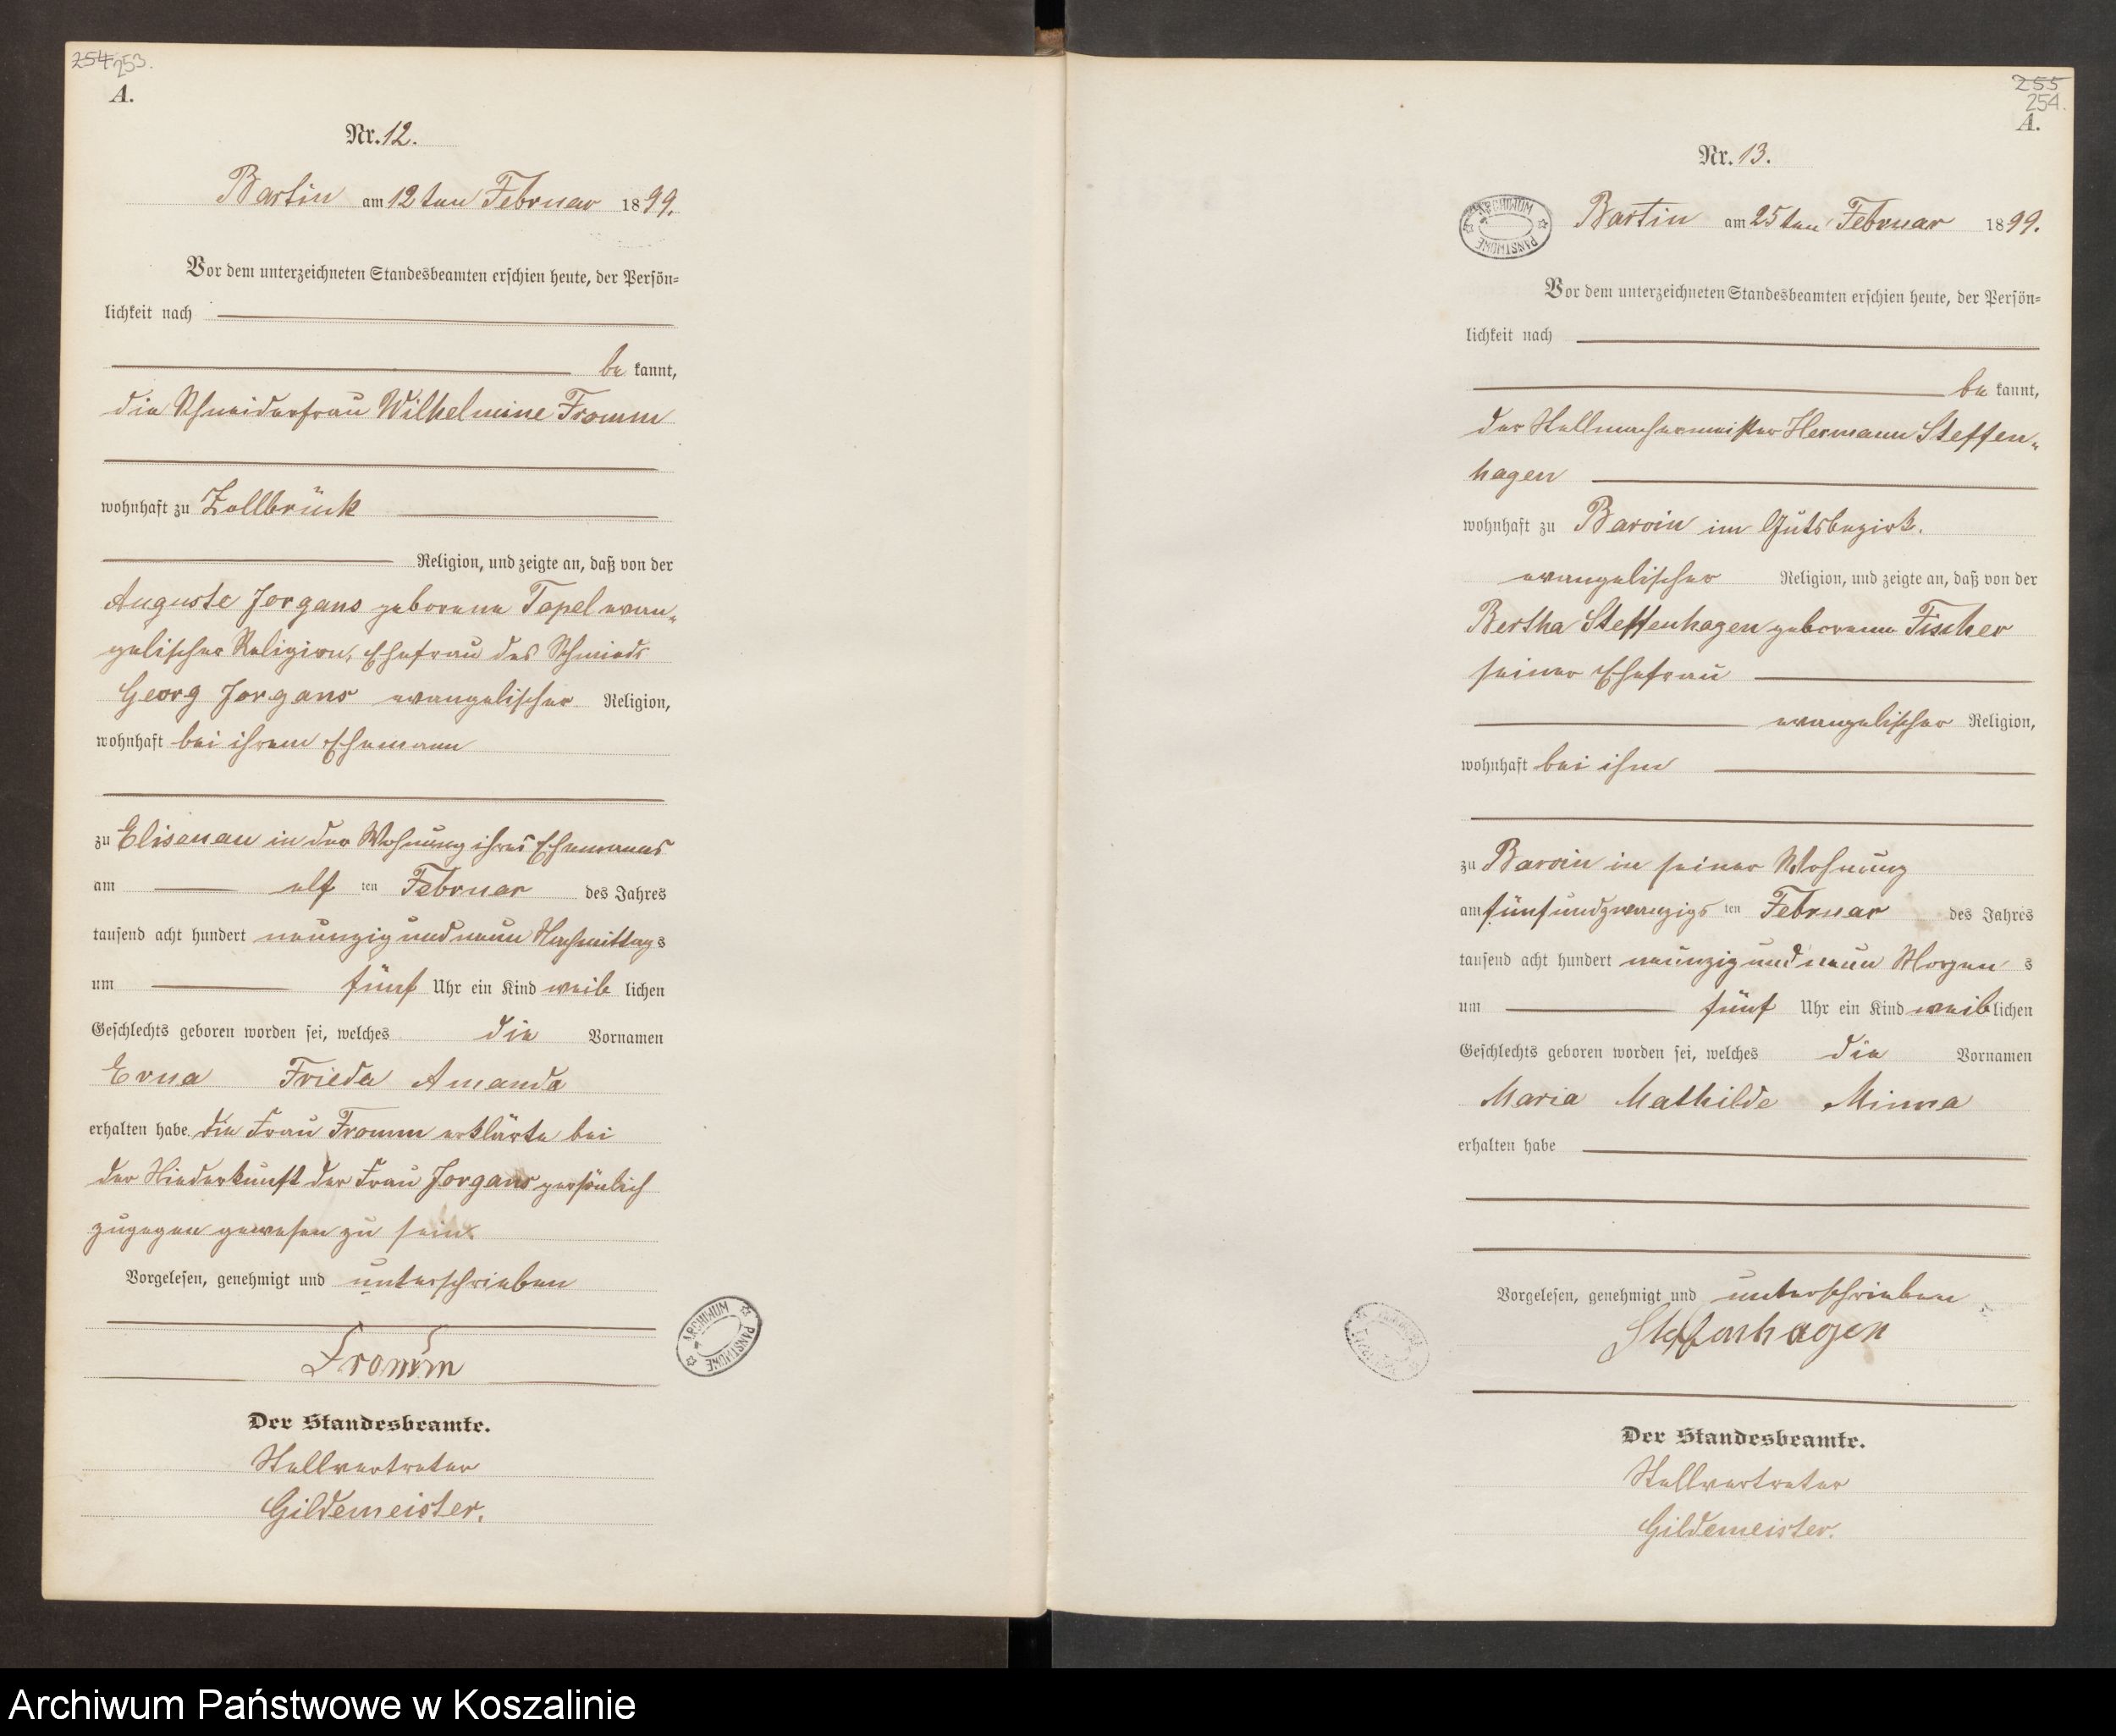 254 253.
A.
Nr. 12.
Bartin am 12ten Februar 1899.
Vor dem unterzeichneten Standesbeamten erschien heute, der Persön-
lichkeit nach
be kannt,
die Schneiderfrau Wilhelmine Fromm
wohnhaft zu Zollbrück
Religion, und zeigte an, daß von der
Auguste Jorgans geborene Topel evan-
gelischer Religion, Ehefrau des Schmieds
Georg Jorgans evangelischer Religion,
wohnhaft bei ihrem Ehemann
zu Elisenau in der Wohnung ihres Ehemanns
am elf ten Februar des Jahres
tausend acht hundert neunzig und neun Nachmittags
um fünf Uhr ein Kind weib lichen
Geschlechts geboren worden sei, welches die Vornamen
Erna Frieda Amanda
erhalten habe. Die Frau Fromm erklärte bei
der Niederkunft der Frau Jorgans persönlich
zugegen gewesen zu sein.
Vorgelesen, genehmigt und unterschrieben
Fromm
Der Standesbeamte.
Stellvertreter
Gildemeister.
ARCHIWUM PAŃSTWOWE
255
254.
A.
Nr. 13.
ARCHIWUM PAŃSTWOWE
Bartin am 25ten Februar 1899.
Vor dem unterzeichneten Standesbeamten erschien heute, der Persön-
lichkeit nach
be kannt,
der Stellmachermeister Hermann Steffen-
hagen
wohnhaft zu Barvin im Gutsbezirk.
evangelischer Religion, und zeigte an, daß von der
Bertha Steffenhagen geborene Fischer
seiner Ehefrau
evangelischer Religion,
wohnhaft bei ihm
zu Barvin in seiner Wohnung
am fünfundzwanzigs ten Februar des Jahres
tausend acht hundert neunzig und neun Morgen s
um fünf Uhr ein Kind weiblichen
Geschlechts geboren worden sei, welches die Vornamen
Maria Mathilde Minna
erhalten habe
Vorgelesen, genehmigt und unterschrieben
Steffenhagen
Der Standesbeamte.
Stellvertreter
Gildemeister.
Archiwum Państwowe w Koszalinie